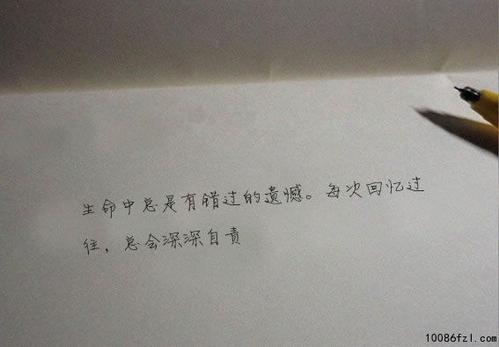 生命中总是有错过的遗憾。每次回忆过
往，总会深深自责
10086fzl.com